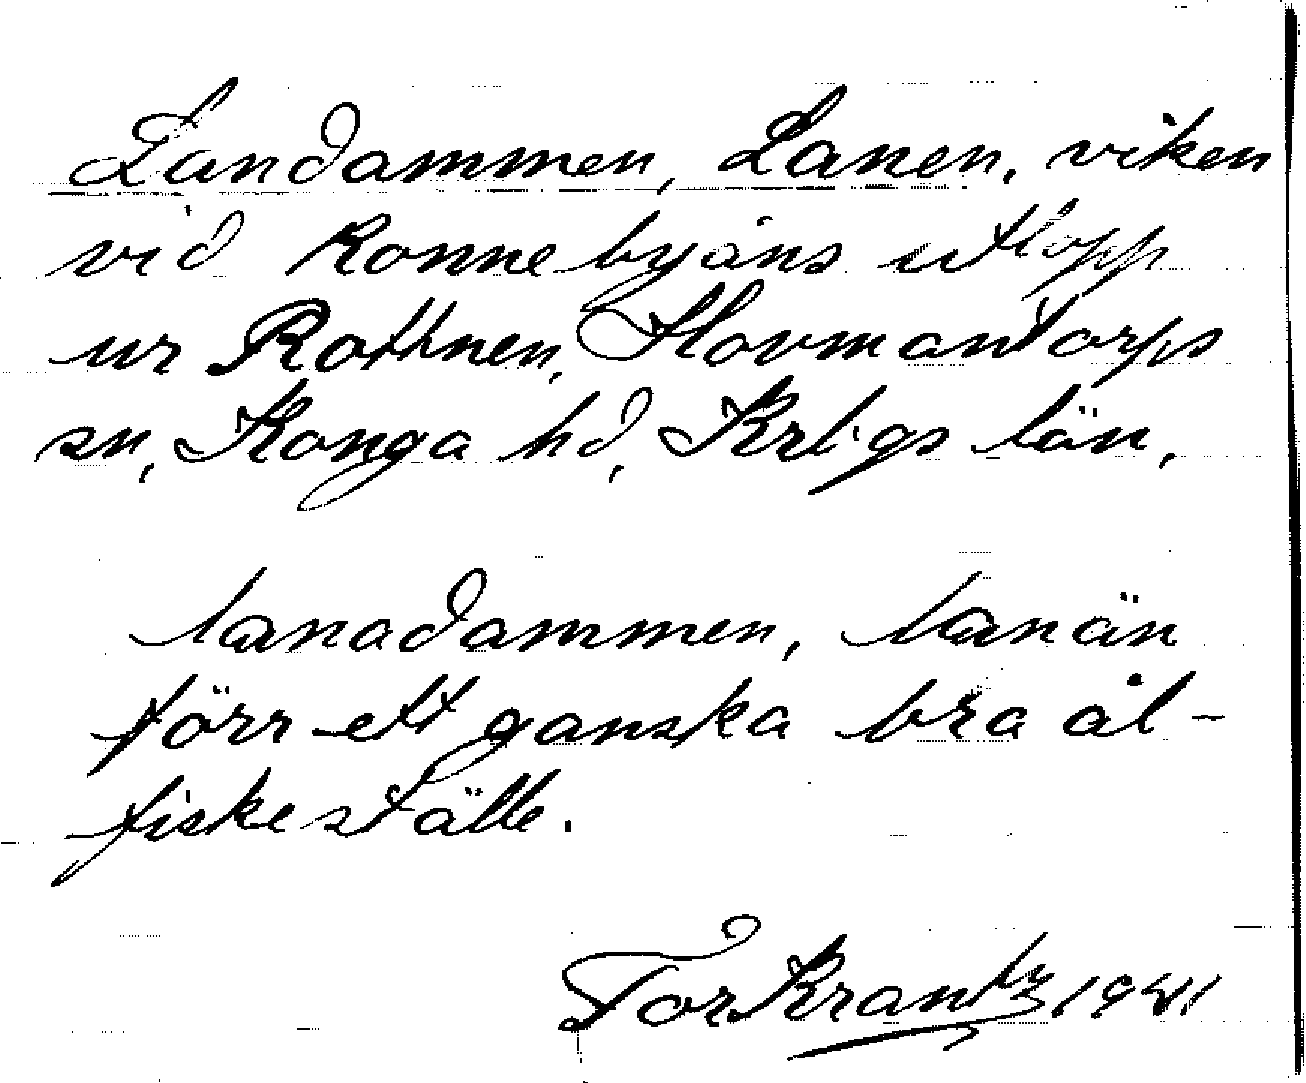 Landammen, Lanen, viken
vid Ronnebyåns utlopp
ur Rottnen, Hovmantorps
sn, Konga hd, Krbgs län,
lanadammen, lanän
förr ett ganska bra ål-
fiskeställe.
Tor Krantz 1941